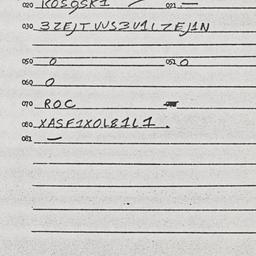 020 ROSOSK1 021 —
030 3ZEJTVVS3V1LZEJ1N
050 0 051 0
060 0
070 ROC
080 XASF1XOL81L1 .
081 —